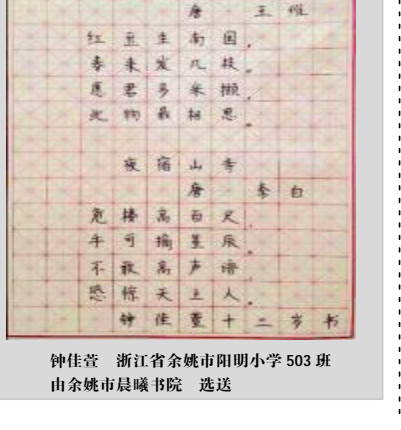 唐·王维
红豆生南国。
春来发几枝。
愿君多采撷。
此物最相思。
夜宿山寺
唐·李白
危楼高百尺。
手可摘星辰。
不敢高声语。
恐惊天上人。
钟佳萱十二岁书
钟佳萱 浙江省余姚市阳明小学 503 班
由余姚市晨曦书院 选送